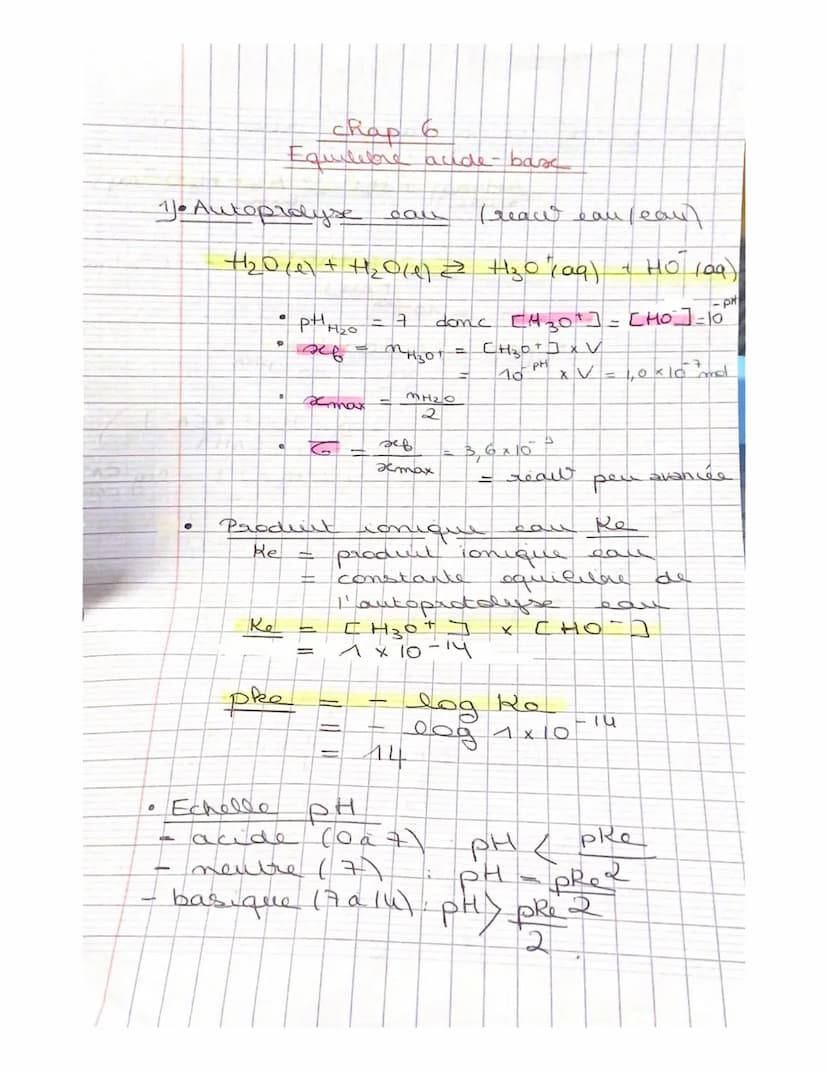 Chap 6
Equilibre acide-base
1)• Autoprolyse eau (réact° eau/eau)
H2O(l) + H2O(l) ⇄ H3O⁺(aq) + HO⁻(aq)
• pH H2O = 7 donc [H3O⁺] = [HO⁻] = 10⁻ᵖᴴ
• xf = nH3O⁺ = [H3O⁺] × V
= 10⁻ᵖᴴ × V = 1,0 × 10⁻⁷ mol
• xmax = nH2O / 2
• τ = xf / xmax = 3,6 × 10⁻⁹
= réact° peu avancée
• Produit ionique eau Ke
Ke = produit ionique eau
= constante equilibre de
l'autoprotolyse eau
Ke = [H3O⁺] × [HO⁻]
= 1 × 10⁻¹⁴
pke = - log Ke
= - log 1 × 10⁻¹⁴
= 14
• Echelle pH
- acide (0 à 7) pH < pKe / 2
- neutre (7) : pH = pKe / 2
- basique (7 à 14) : pH > pKe / 2